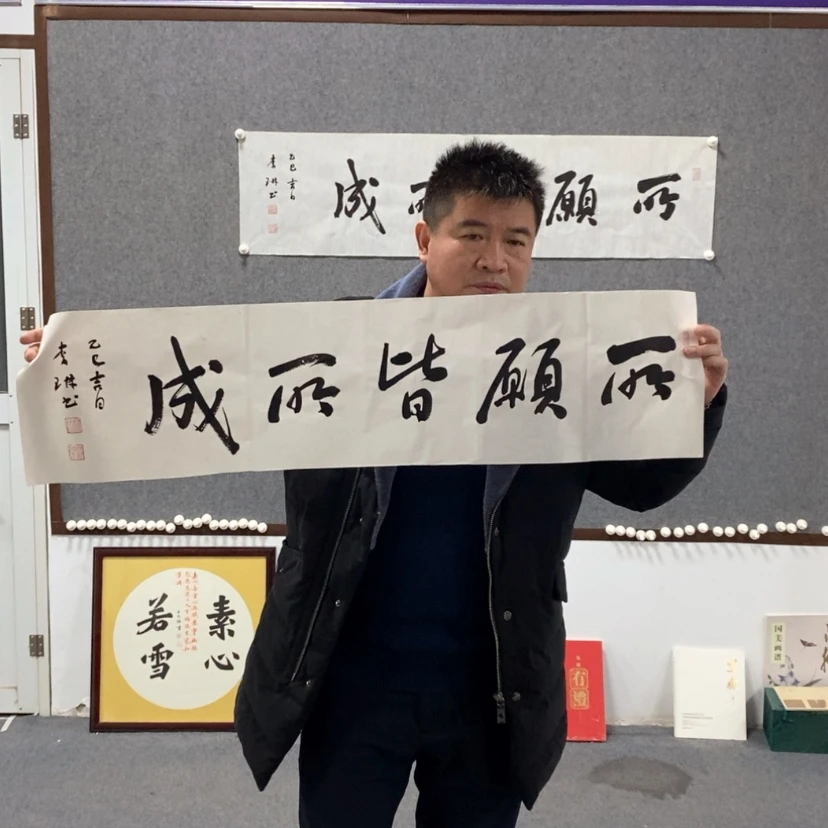 所願皆所成
乙巳吉日
李琳书
所願所成
乙巳吉日
李琳书
素心
若雪
有禮
国美画谱